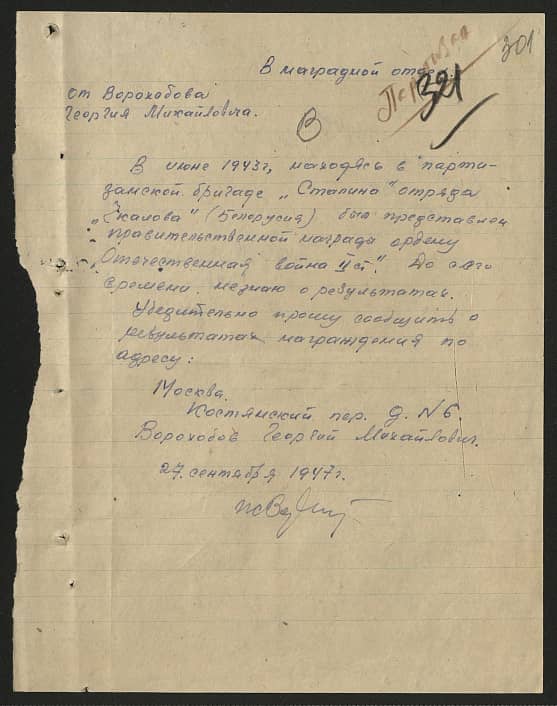 301
Переписка
В наградной отдел.
321
от Ворохобова
Георгия Михайловича.
В
В июне 1943г, находясь в парти-
занской бригаде „Сталина" отряда
„Чкалова" (Белорусия) был представлен
правительственной награды ордену
„Отечественная война II ст". До сего
времени незнаю о результатах.
Убедительно прошу сообщить о
результатах награждения по
адресу:
Москва.
Костянский пер. д. N6.
Ворохобов Георгий Михайлович.
27. сентября 1947г.